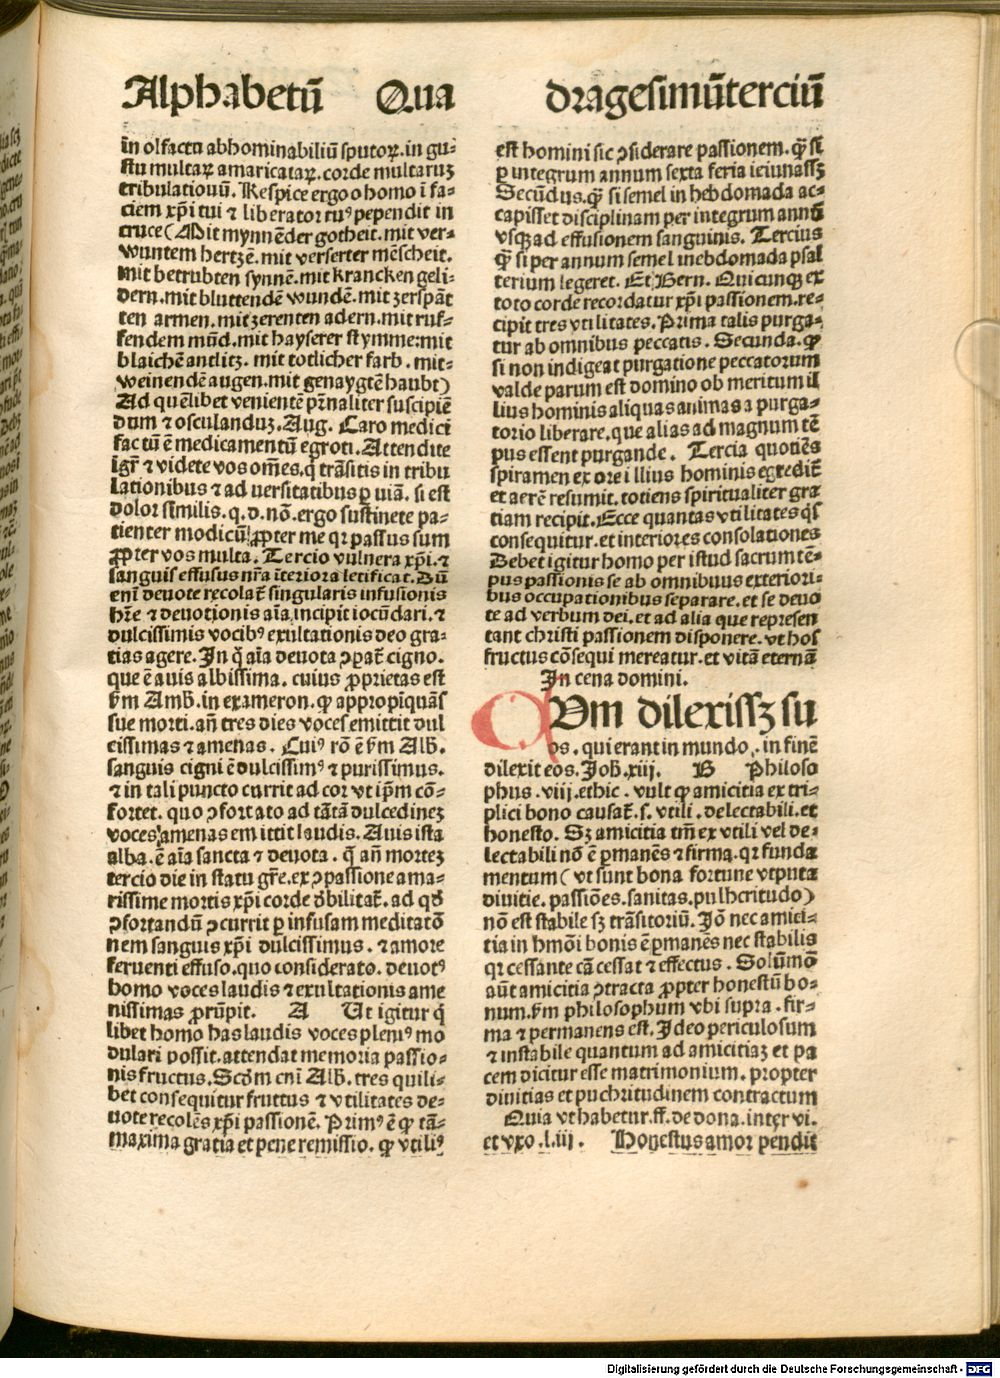 Alphabetū Qua
dragesimūterciū
in olfactu abhominabiliū sputoꝝ. in gu⸗
stu multaꝝ amaricataꝝ. corde multaruꝫ
tribulationū. Respice ergo o homo ī fa⸗
ciem xp̄i tui ⁊ liberator tuꝰ pependit in
cruce (Mit mynnēder gotheit. mit ver⸗
wuntem hertzē. mit verserter mēscheit.
mit betrubten synnē. mit krancken geli⸗
dern. mit bluttendē wundē. mit zerspāt
ten armen. mit zerenten adern. mit ruf⸗
fendem mūd. mit hayserer stymme: mit
blaichē antlitz. mit totlicher farb. mit⸗
weinendē augen. mit genaygtē haubt)
Ad quēlibet venientē pr̄naliter suscipiē
dum ⁊ osculanduꝫ. Aug. Caro medici
factū ē medicamentū egroti. Attendite
igr̄ ⁊ videte vos om̄es. q̄ trāsitis in tribu
lationibus ⁊ ad uersitatibus ꝑ uiā. si est
dolor similis. q. d. nō. ergo sustinete pa⸗
tienter modicū ꝓpter me qr passus sum
ꝓpter vos multa. Tercio vulnera xp̄i. ⁊
sanguis effusus nr̄a īteriora letificat. Dū
enī deuote recolat̄ singularis infusionis
hr̄e ⁊ deuotionis aīa incipit iocūdari. ⁊
dulcissimis vocibꝰ exultationis deo gra⸗
tias agere. In q̄ aīa deuota ꝯpat̄ cigno.
que ē auis albissima. cuius ꝓprietas est
ẜm Amb̄. in exameron. ꝙ appropīquās
sue morti. an̄ tres dies voces emittit dul
cissimas ⁊ amenas. Cuiꝰ rō ē ẜm Alb̄.
sanguis cigni ē dulcissimꝰ ⁊ purissimus.
⁊ in tali puncto currit ad cor vt ip̄m cō⸗
fortet. quo ꝯfortato ad tātā dulcedineꝫ
voces amenas emittit laudis. Auis ista
alba. ē aīa sancta ⁊ deuota. q̄ an̄ morteꝫ
tercio die in statu gr̄e. ex ꝯpassione ama⸗
rissime mortis xp̄i corde debilitat̄. ad qd̄
ꝯfortandū ꝯcurrit ꝑ infusam meditatō
nem sanguis xp̄i dulcissimus. ⁊ amore
feruenti effuso. quo considerato. deuotꝰ
homo voces laudis ⁊ exultationis ame
nissimas ꝓrūpit. A Ut igitur q̄
libet homo has laudis voces pleniꝰ mo
dulari possit. attendat memoria passio⸗
nis fructus. Scd̄m cnī Alb̄. tres quili⸗
bet consequitur fructus ⁊ vtilitates de⸗
uote recolēs xp̄i passionē. Primꝰ ē ꝙ tā⸗
maxima gratia et pene remissio. ꝙ vtiliꝰ
est homini sic ꝯsiderare passionem. ꝙ̄ si
ꝑ integrum annum sexta feria ieiunassꝫ
Secūdus. ꝙ̄ si semel in hebdomada ac⸗
capisset disciplinam per integrum annū
vsqꝫ ad effusionem sanguinis. Tercius
ꝙ̄ si per annum semel inebdomada psal
terium legeret. Et Bern. Quicunqꝫ ex
toto corde recordatur xp̄i passionem. re⸗
cipit tres vtilitates. Prima talis purga⸗
tur ab omnibus peccatis. Secunda. ꝙ
si non indigeat purgatione peccatorum
valde parum est domino ob meritum il
lius hominis aliquas animas a purga⸗
torio liberare. que alias ad magnum tē
pus essent purgande. Tercia quotiēs
spiramen ex ore illius hominis egredit̄
et aerē resumit. totiens spiritualiter gra
tiam recipit. Ecce quantas vtilitates q̄s
consequitur. et interiores consolationes
Debet igitur homo per istud sacrum tē⸗
pus passionis se ab omnibuus exteriori⸗
bus occupationibus separare. et se deuo
te ad verbum dei. et ad alia que represen
tant christi passionem disponere. vt hos
fructus cōsequi mereatur. et vitā eternā
In cena domini.
CUm dilexissꝫ su
os. qui erant in mundo. in finē
dilexit eos. Joh̄. xiij. B Philoso
phus. viij. ethic. vult ꝙ amicitia ex tri⸗
plici bono causat̄. s. vtili. delectabili. et
honesto. Sꝫ amicitia tm̄ ex vtili vel de⸗
lectabili nō ē ꝑmanēs ⁊ firma. qr funda
mentum (vt sunt bona fortune vtputa
diuitie. passiōes. sanitas. pulhcritudo)
nō est stabile sꝫ trāsitoriū. Jō nec amici⸗
tia in hmōi bonis ē ꝑmanēs nec stabilis
qr cessante cā cessat ⁊ effectus. Solūmō
aūt amicitia ꝯtracta ꝓpter honestū bo⸗
num. ẜm philosophum vbi supra. fir⸗
ma ⁊ permanens est. Ideo periculosum
⁊ instabile quantum ad amicitiaꝫ et pa
cem dicitur esse matrimonium. propter
diuitias et puchritudinem contractum
Quia vt habetur. ff. de dona. inter vi.
et vxo. l. iij. Honestus amor pendit
Digitalisierung gefördert durch die Deutsche Forschungsgemeinschaft - DFG